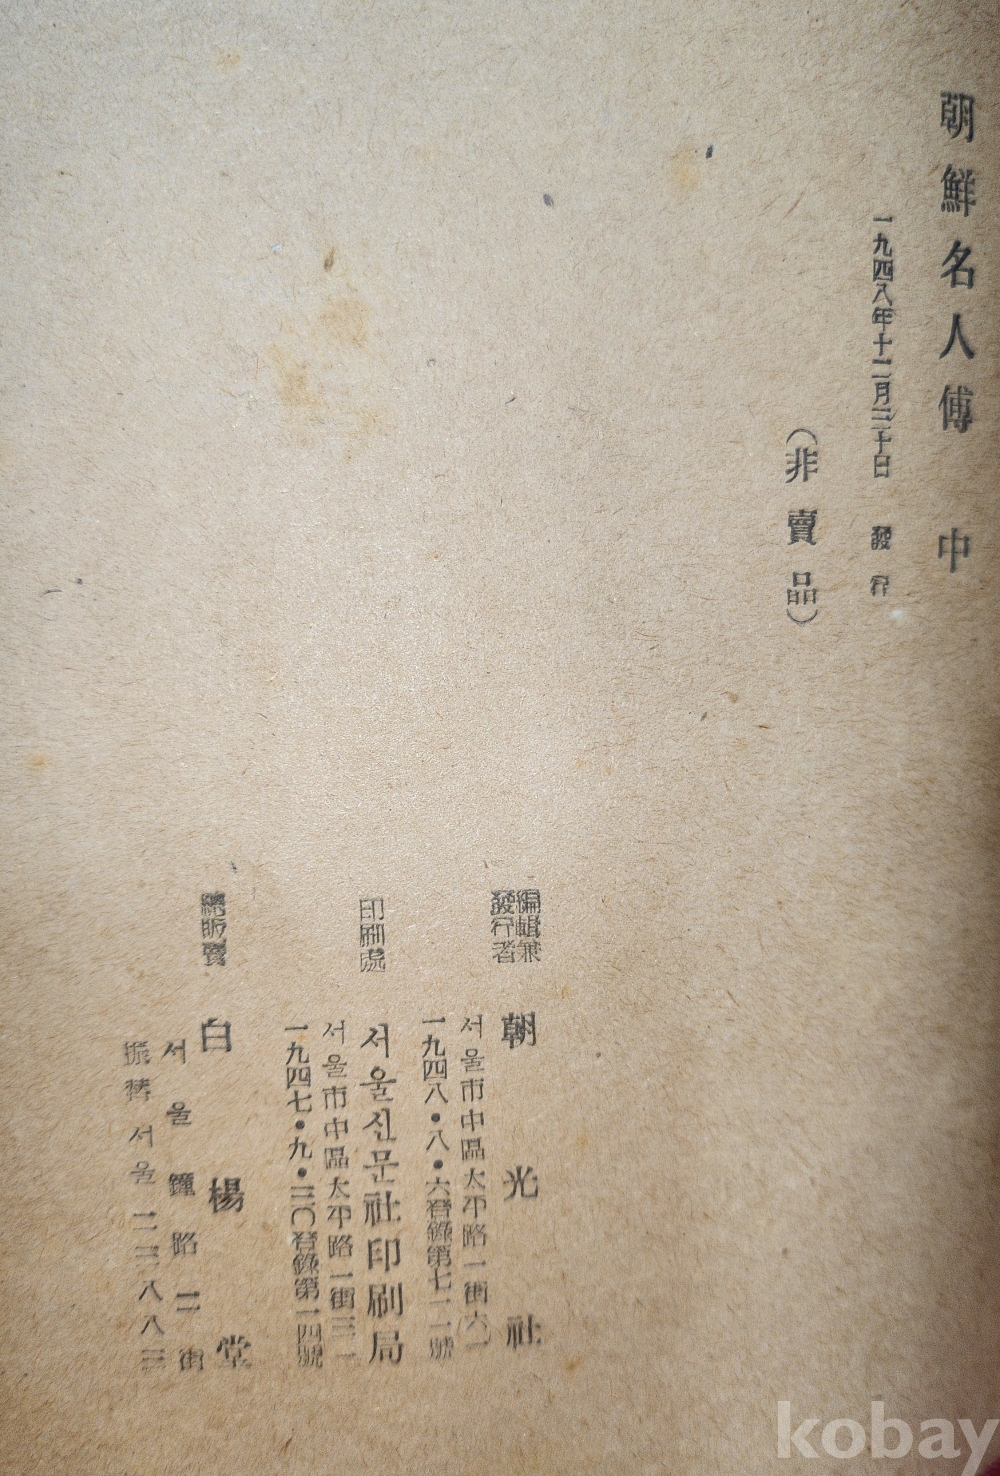 朝鮮名人傳 中
一九四八年十二月三十日 發行
(非賣品)
編輯兼
發行者
朝光社
서울市中區太平路一街六一
一九四八·八·六登錄第七一一號
印刷處
서울신문社印刷局
서울市中區太平路一街三一
一九四七·九·三〇登錄第一四號
總販賣
白楊堂
서울鐘路二街
振替서울一三八八三
kobay